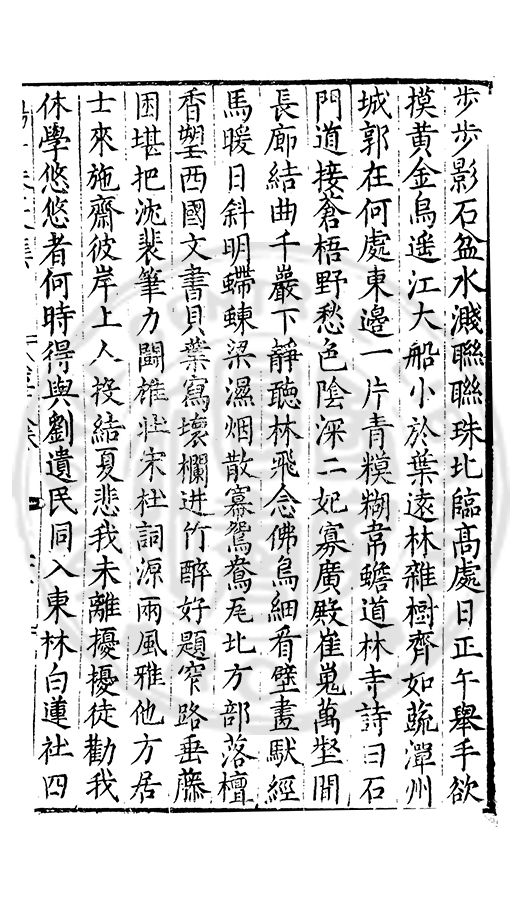 步步影石盆水濺聯聯珠北臨高處日正午舉手欲
摸黃金烏遙江大船小於葉遠林雜樹齊如蔬潭州
城郭在何處東邊一片青糢糊韋蟾道林寺詩曰石
門道接蒼梧野愁色陰深二妃寡廣殿崔嵬萬壑間
長廊結曲千巖下靜聽林飛念佛鳥細看壁畫馱經
馬暖日斜明螮蝀梁濕烟散冪鴛鴦瓦北方部落檀
香塑西國文書貝葉寫壞欄迸竹醉好題窄路垂藤
困堪把沈裴筆力鬪雄壯宋杜詞源兩風雅他方居
士來施齋彼岸上人投結夏悲我未離擾擾徒勸我
休學悠悠者何時得與劉遺民同入東林白蓮社四